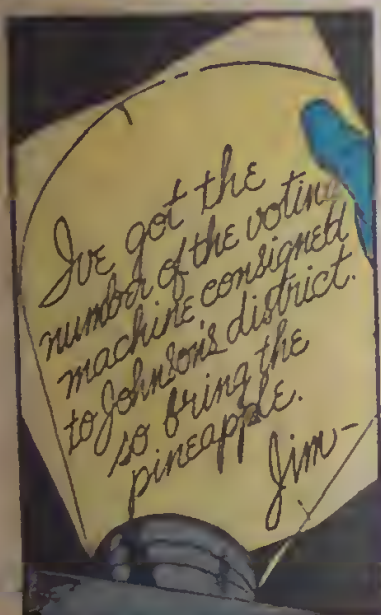 I've got the
number of the voting
machine consigned
to Johnson's district.
so bring the
pineapple.
Jim-